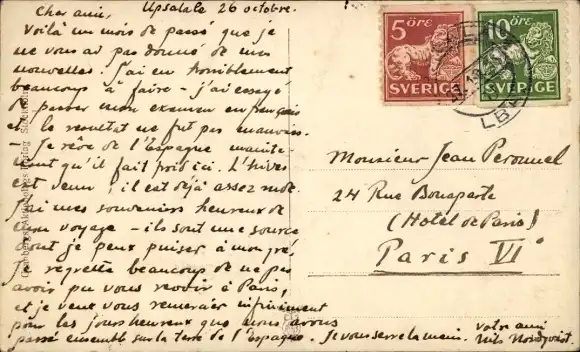 Upsala le 26 octobre.
Cher ami,
Voilà un mois de passé que je
ne vous ai pas donné de mes
nouvelles. J'ai eu horriblement
beaucoup à faire - j'ai essayé
de passer mon examen en français
et le resultat ne fut pas mauvais.
- Je rêve de l'Espagne mainte-
nant qu'il fait froid ici. L'hiver
est venu, il est déjà assez rude.
J'ai mes souvenirs heureux de
mon voyage - ils sont une source
dont je peux puiser à mon gré.
Je regrette beaucoup de ne pas
avoir pu vous revoir à Paris,
et je veux vous remercier infiniment
pour les jours heureux que nous avons
passé ensemble sur la terre de l'Espagne. Je vous serre la main.
Votre ami
Nils Nordqvist.
5 ÖRE
SVERIGE
10 ÖRE
SVERIGE
Monsieur Jean
24 Rue Bonaparte
(Hotel de Paris)
Paris VIe